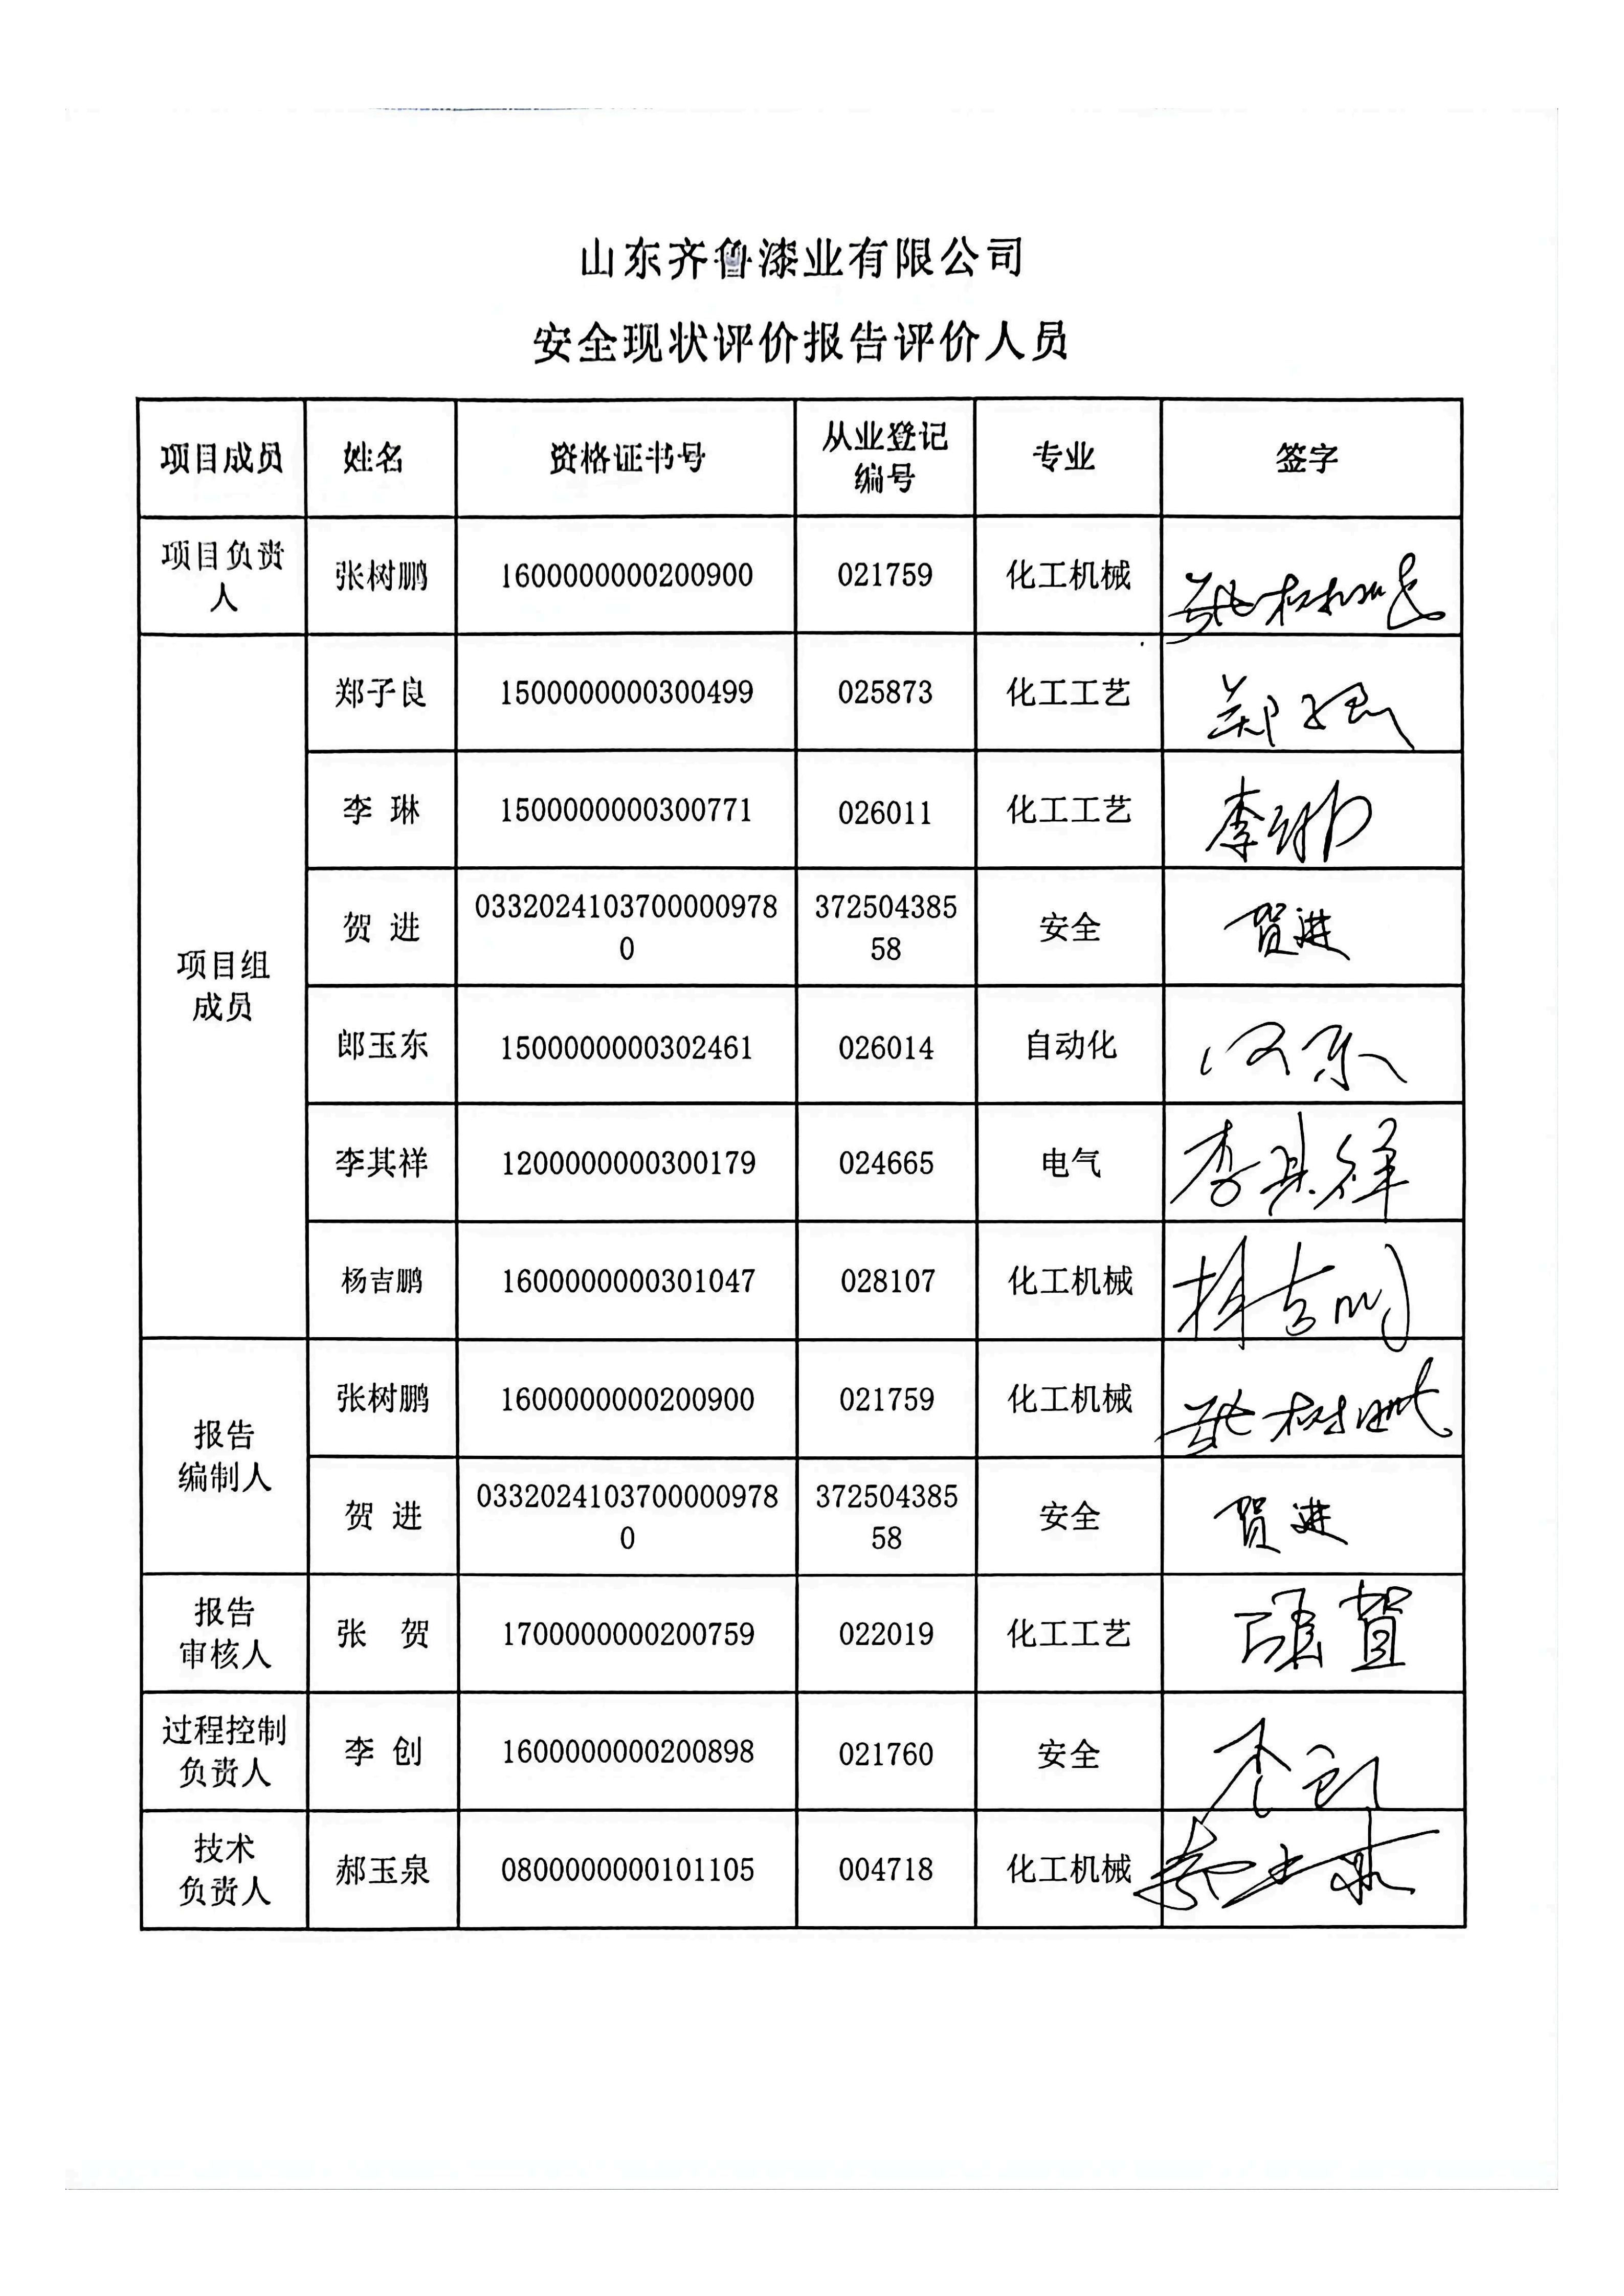 山东齐鲁漆业有限公司
安全现状评价报告评价人员
项目成员 姓名 资格证书号 从业登记编号 专业 签字
项目负责人 张树鹏 1600000000200900 021759 化工机械 张树鹏
项目组成员 郑子良 1500000000300499 025873 化工工艺 郑子良
李 琳 1500000000300771 026011 化工工艺 李琳
贺 进 03320241037000009780 37250438558 安全 贺进
郎玉东 1500000000302461 026014 自动化
李其祥 1200000000300179 024665 电气 李其祥
杨吉鹏 1600000000301047 028107 化工机械 杨吉鹏
报告编制人 张树鹏 1600000000200900 021759 化工机械 张树鹏
贺 进 03320241037000009780 37250438558 安全 贺进
报告审核人 张 贺 1700000000200759 022019 化工工艺 张贺
过程控制负责人 李 创 1600000000200898 021760 安全 李创
技术负责人 郝玉泉 0800000000101105 004718 化工机械